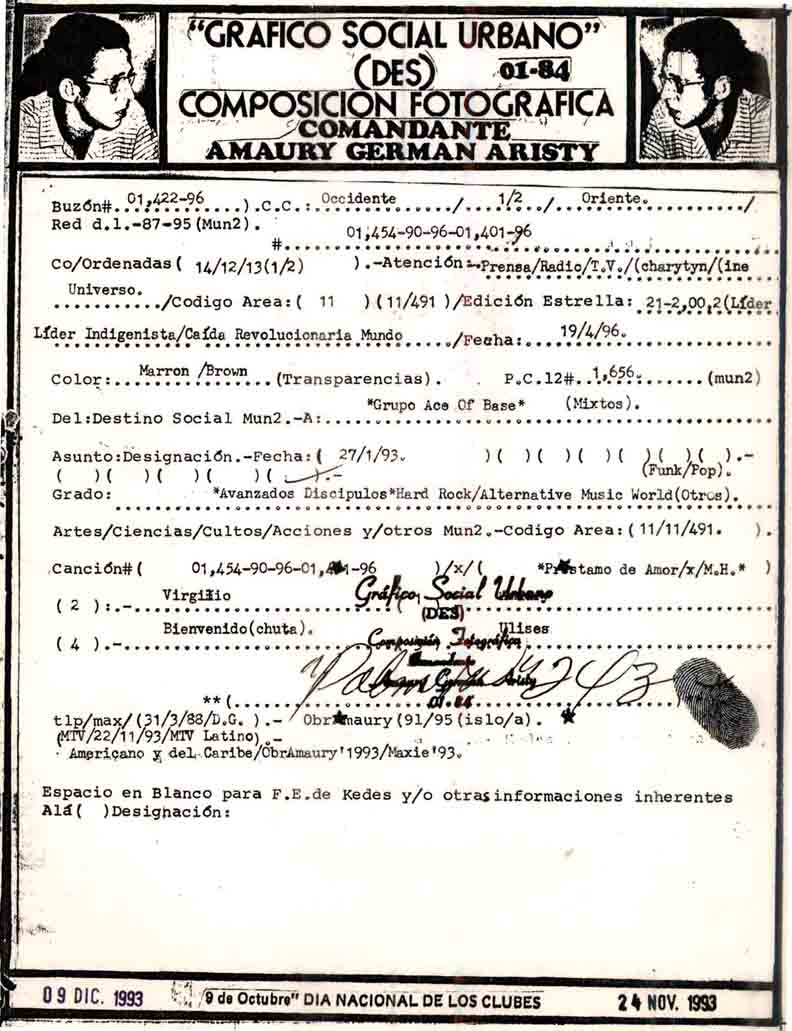 "GRAFICO SOCIAL URBANO"
(DES) 01-84
COMPOSICION FOTOGRAFICA
COMANDANTE
AMAURY GERMAN ARISTY
Buzón#..01,422-96..).C.C.:Occidente/1/2./Oriente./
Red d.l.-87-95(Mun2).
#01,454-90-96-01,401-96
Co/Ordenadas( 14/12/13(1/2) ).-Atención:-Prensa/Radio/T.V./(charytyn/(ine
Universo.
/Codigo Area:( 11 )(11/491 )/Edición Estrella: 21-2,00,2(Líder
Líder Indigenista/Caída Revolucionaria Mundo ./Fecha: 19/4/96.
Color: Marron /Brown (Transparencias). P.C.12#..1,656.(mun2)
*Grupo Ace Of Base* (Mixtos).
Del:Destino Social Mun2.-A:
Asunto:Designación.-Fecha:( 27/1/93. )( )( )( )( )( )( ).-
( )( )( )( )( ).- (Funk/Pop).
Grado: *Avanzados Discipulos*Hard Rock/Alternative Music World(Otros).
Artes/Ciencias/Cultos/Acciones y/otros Mun2.-Codigo Area:(11/11/491. ).
Canción#( 01,454-90-96-01,401-96 )/x/( *Préstamo de Amor/x/M.H.* )
( 2 ):.- Virgilio
Gráfico Social Urbano
(DES)
( 4 ).- Bienvenido(chuta). Ulises
Composición Fotográfica
Comandante
Amaury Germán Aristy
01-84
**(
tlp/max/(31/3/88/D.G. ).- Obr*maury(91/95(islo/a). *
(MTV/22/11/93/MTV Latino).-
Americano y del Caribe/ObrAmaury'1993/Maxie'93.
Espacio en Blanco para F.E.de Redes y/o otras informaciones inherentes
Alá( )Designación:
09 DIC. 1993 9 de Octubre" DIA NACIONAL DE LOS CLUBES 24 NOV. 1993